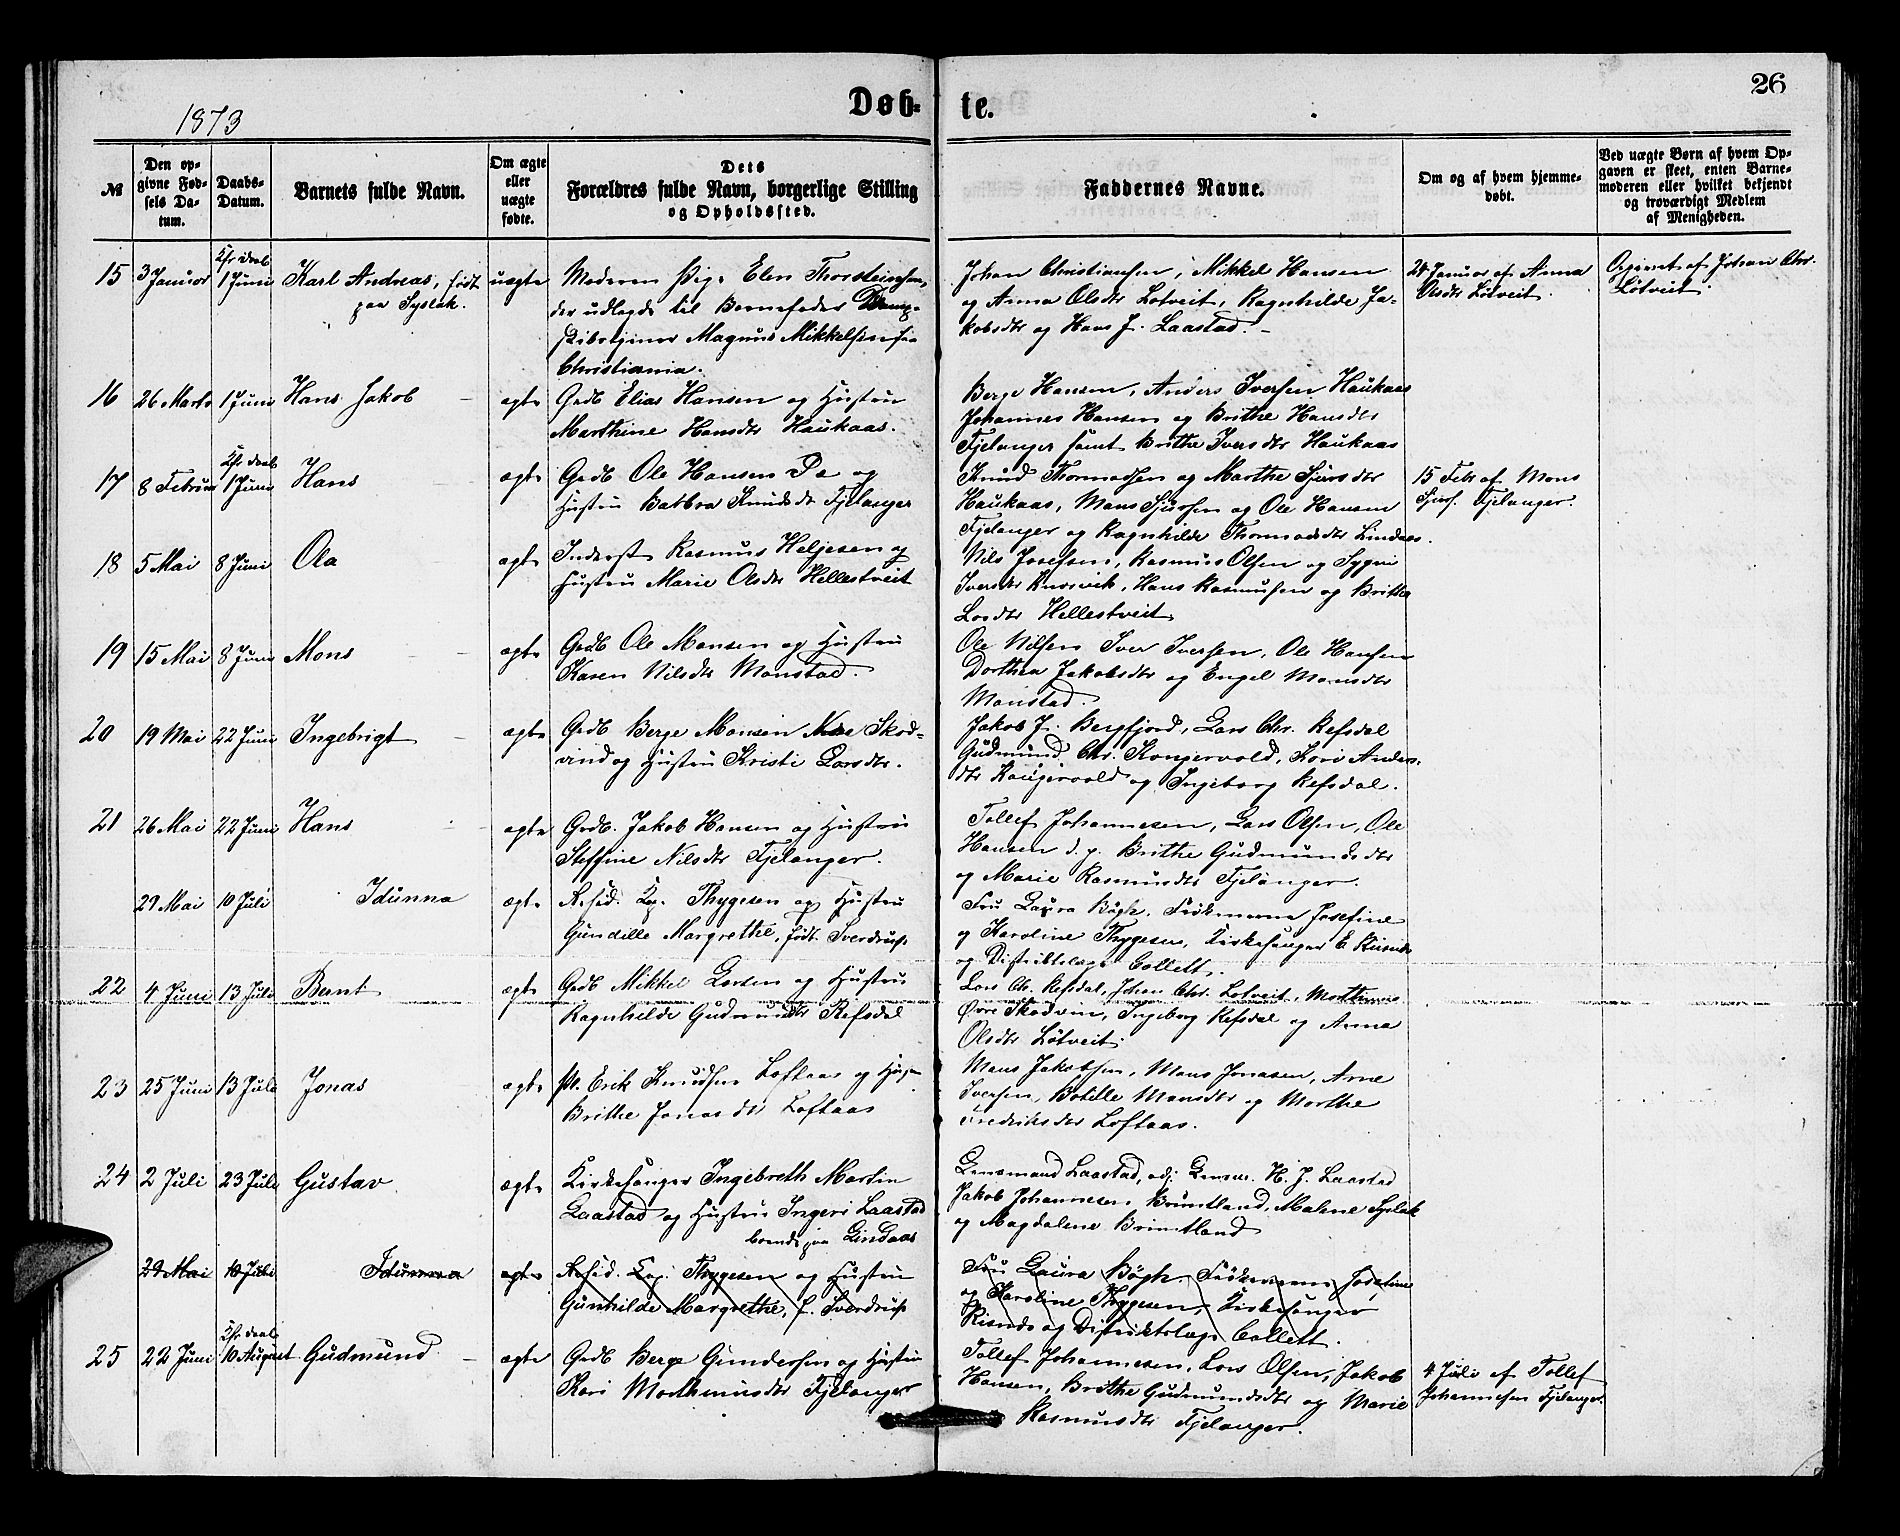 26
Døb- te.
1873
№
Den op-
givne Fød-
sels Da-
tum.
Daabs-
Datum.
Barnets fulde Navn.
Om ægte
eller
uægte
fødte.
Dets
Forældres fulde Navn, borgerlige Stilling
og Opholdssted.
Faddernes Navne.
Om og af hvem hjemme-
døbt.
Ved uægte Børn af hvem Op-
gaven er skeet, enten Barne-
moderen eller hvilket bekjendt
og troværdigt Medlem
af Menigheden.
15 3 Januar 1 Juni Karl Andreas, født
paa Syslak.
uægte
Moderen Pige Elen Thorsteinsen,
der udlagde til Barnefader
Magnus Mikkelsen fra
Christiania.
Johan Christiansen, Mikkel Hansen
og Anna Olsdtr Lotveit, Ragnhilde Ja-
kobsdtr og Hans J. Laastad.
24 Januar af Anna
Olsdtr Løtveit.
Opgivet af Johan Chr.
Løtveit.
16 26 Marts 1 Juni Hans Jakob ægte
Grdb Elias Hansen og Hustru
Marthine Hansdtr Haukaas.
Berge Hansen, Anders Iversen Haukaas
Johannes Hansen og Brithe Hansdtr
Fjelanger samt Brithe Iversdtr Haukaas
17 8 Februar 1 Juni Hans ægte
Grdb Ole Hansen Pa og
Hustru Barbra Knudsdtr Fjelanger
Knud Thormodsen og Marthe Sjursdtr
Haukaas, Mons Sjursen og Ole Hansen
Fjelanger og Ragnhilde Thormodsdtr Lindaas.
15 Febr af Mons
Sjurs. Fjelanger.
18 5 Mai 8 Juni Ola ægte
Inderst Rasmus Heljesen og
Hustru Marie Olsdtr Hellestveit
Nils Josefsen, Rasmus Olsen og Sygni
Iversdtr Knorvik, Hans Rasmusen og Brithe
Larsdtr Hellestveit
19 15 Mai 8 Juni Mons ægte
Grdb Ole Monsen og Hustru
Karen Nilsdtr Monstad.
Ole Nilsen Iver Iversen, Ole Hansen
Dorthea Jakobsdtr og Engel Monsdtr
Monstad.
20 19 Mai 22 Juni Ingebrigt ægte
Grdb Berge Monsen Nere Skod-
vind og Hustru Kristi Larsdtr.
Jakob J. Bergfjord, Lars Chr. Refsdal
Gudmund Chr. Kongervold, Kari Anders-
dtr Kongervold og Ingeborg Refsdal.
21 26 Mai 22 Juni Hans ægte
Grdb. Jakob Hansen og Hustru
Steffine Nilsdtr Fjelanger.
Tollef Johannesen, Lars Olsen, Ole
Hansen d. y. Brithe Gudmundsdtr
og Marie Rasmusdtr Fjelanger.
29 Mai 10 Juli Idunna ægte
Resid. Kap. Thygesen og Hustru
Gunilde Margrethe, født Sverdrup
Fru Laura Bøgh, Frøknerne Josefine
og Karoline Thygesen, Kirkesanger E. Risnes
og Distriktslæge Collett.
22 4 Juni 13 Juli Bernt ægte
Grdb Mikkel Larsen og Hustru
Ragnhilde Gudmundsdtr Refsdal
Lars Ch. Refsdal, Johan Chr. Lotveit, Mortinus
Øvre Skodvin, Ingeborg Refsdal og Anna
Olsdtr Løtveit.
23 25 Juni 13 Juli Jonas ægte
Pl. Erik Knudsen Loftaas og Hustru
Brithe Jonasdtr Loftaas
Mons Jakobsen, Mons Jonasen, Arne
Iversen, Botille Monsdtr og Marthe
Fredriksdtr Loftaas.
24 2 Juli 23 Juli Gustav ægte
Kirkesanger Ingebreth Martin
Laastad og Hustru Ingeri Laastad
boende paa Lindaas
Lensmand Laastad, adj. Lensm. H. J. Laastad
Jakob Johannesen Bruntland, Malene Syslak
og Magdalene Bruntland
29 Mai 10 Juli Idunna ægte
Resid. Kap. Thygesen og Hustru
Gunhilde Margrethe, f. Sverdrup
Fru Laura Bøgh, Frøknerne Josefine
og Karoline Thygesen, Kirkesanger
Risnes og Distriktslæge Collett.
25 22 Juni 10 August Gudmund ægte
Grdb Berge Gundersen og Hustru
Kari Mortinusdtr Fjelanger
Tollef Johannesen, Lars Olsen, Jakob
Hansen, Brithe Gudmundsdtr og Marie
Rasmusdtr Fjelanger.
4 Juli af Tollef
Johannesen Fjelanger.